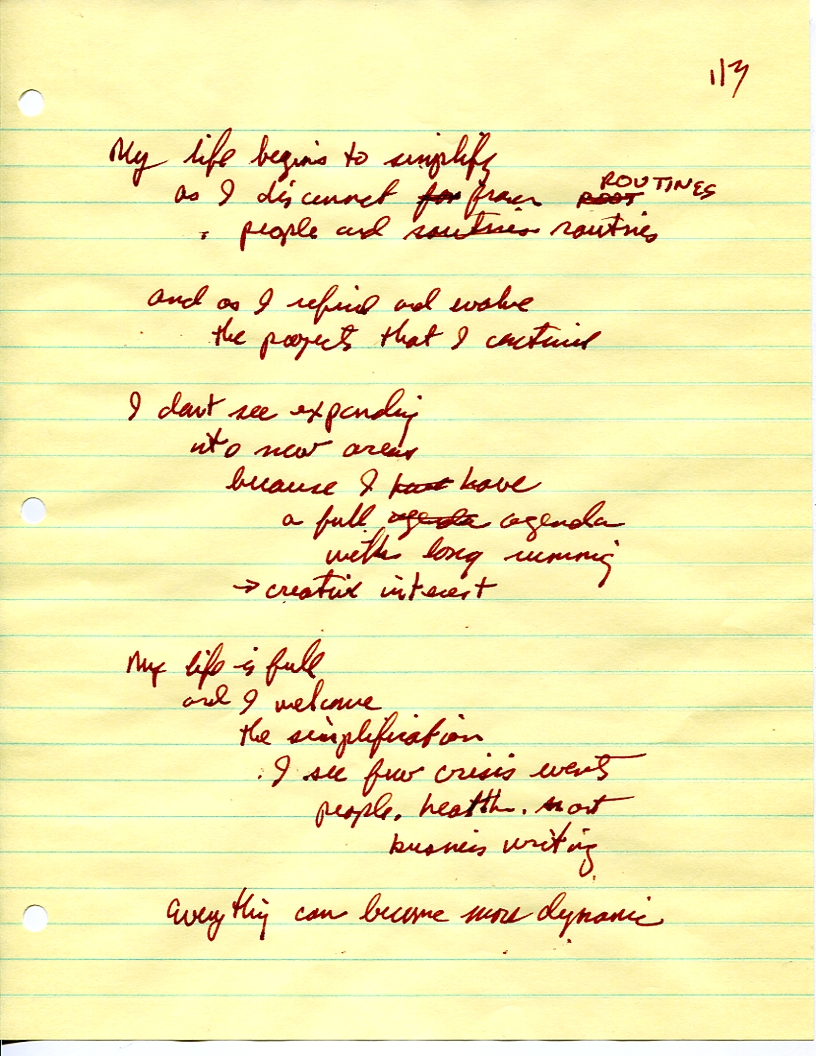 1/3
My life begins to simplify
as I disconnect for from ROOT ROUTINES
people and routines routines
and as I refine and evolve
the projects that I continue
I don't see expanding
into new areas
because I have
a full agenda agenda
with long running
→ creative interest
My life is full
and I welcome
the simplification
I see few crisis events
people, health, art
business writing
Everything can become more dynamic